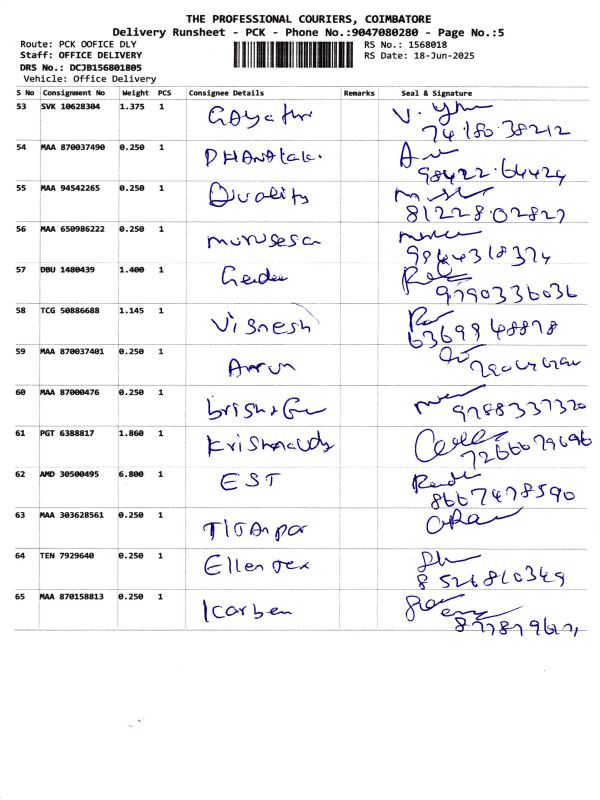 THE PROFESSIONAL COURIERS, COIMBATORE
Delivery Runsheet - PCK - Phone No.:9047080280 - Page No.:5
Route: PCK OOFICE DLY
Staff: OFFICE DELIVERY
DRS No.: DCJB156801805
Vehicle: Office Delivery
RS No.: 1568018
RS Date: 18-Jun-2025
S No Consignment No Weight PCS Consignee Details Remarks Seal & Signature
53 SVK 10628304 1.375 1 Gayathri
74180.38212
54 MAA 870037490 0.250 1
98422.64424
55 MAA 94542265 0.250 1 Quality
81228.02827
56 MAA 650986222 0.250 1 murugesan
9944318374
57 DBU 1480439 1.400 1
9790336036
58 TCG 50886688 1.145 1 Vignesh
6369948878
59 MAA 870037401 0.250 1 Arrun
60 MAA 87000476 0.250 1
9788337320
61 PGT 6388817 1.860 1
7266679696
62 AMD 30500495 6.800 1 EST
8667478590
63 MAA 303628561 0.250 1
64 TEN 7929640 0.250 1 Ellentex
8526810349
65 MAA 870158813 0.250 1 Icarben